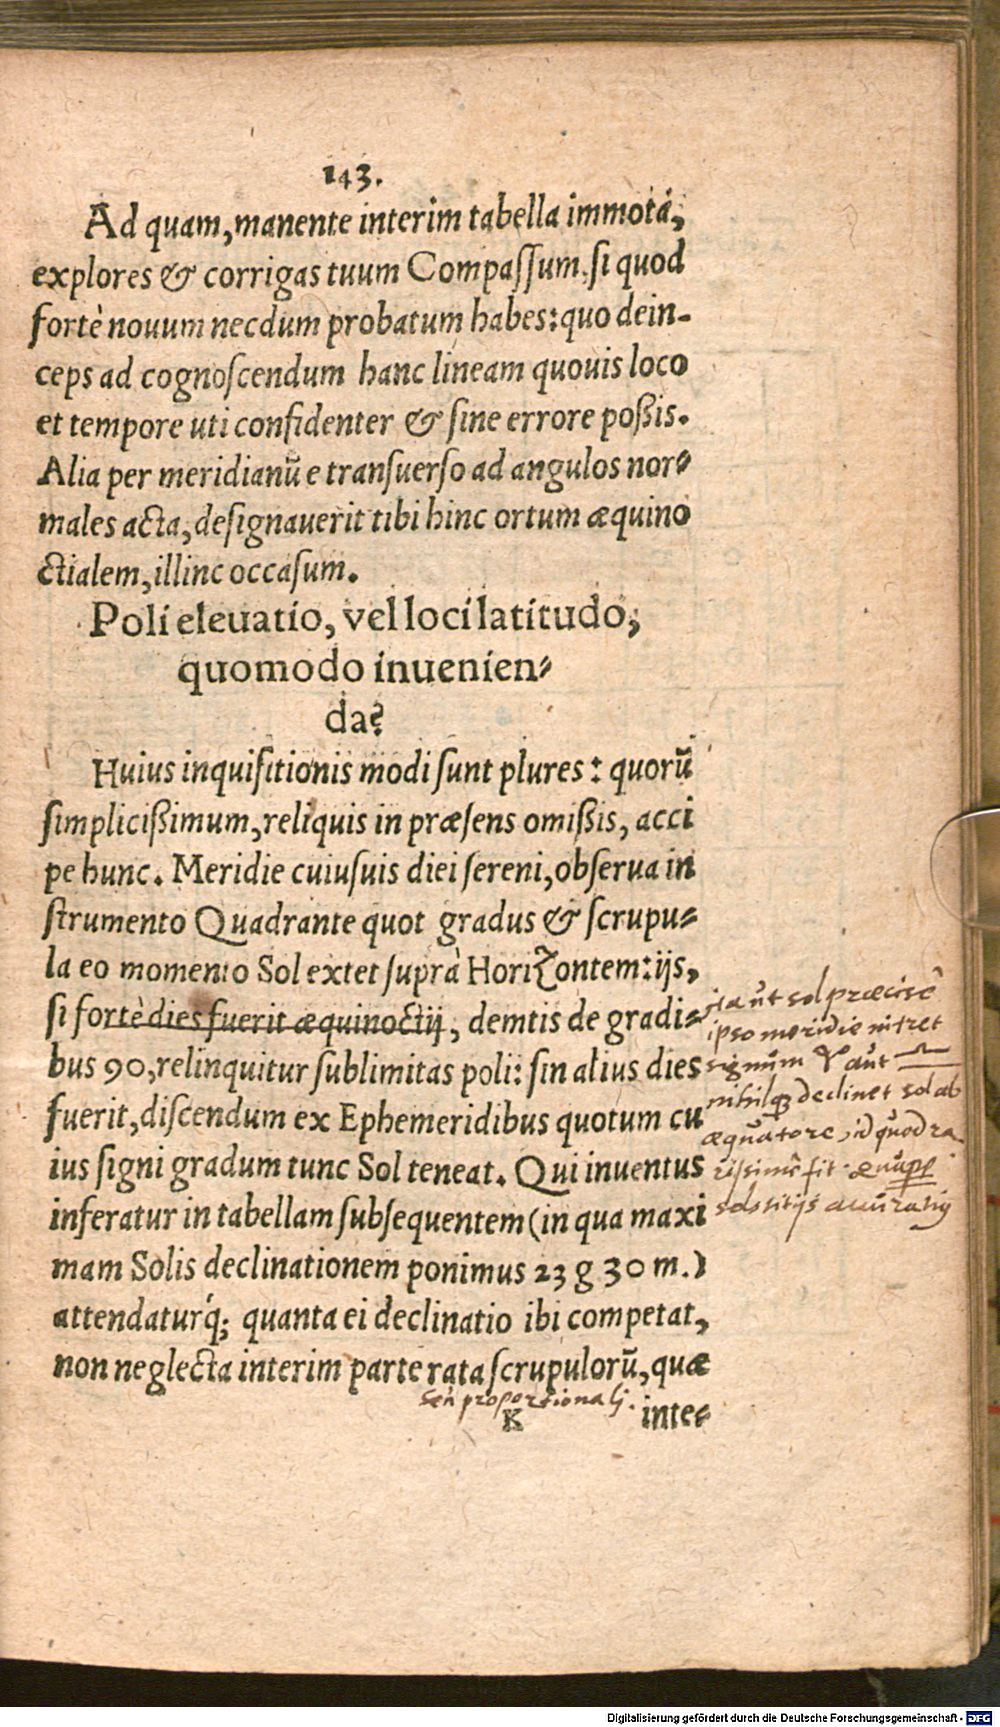 143.
Ad quam, manente interim tabella immota,
explores & corrigas tuum Compassum, si quod
fortè nouum necdum probatum habes: quo dein-
ceps ad cognoscendum hanc lineam quouis loco
et tempore uti confidenter & sine errore poßis.
Alia per meridianū e transuerso ad angulos nor-
males acta, designauerit tibi hinc ortum æquino
ctialem, illinc occasum.
Poli eleuatio, vel loci latitudo,
quomodo inuenien-
da?
Huius inquisitionis modi sunt plures: quorū
simplicißimum, reliquis in præsens omißis, acci
pe hunc. Meridie cuiusuis diei sereni, obserua in
strumento Quadrante quot gradus & scrupu-
la eo momento Sol extet suprà Horizontem: ijs,
si fortè dies fuerit æquinoctij, demtis de gradi-
bus 90, relinquitur sublimitas poli: sin alius dies
fuerit, discendum ex Ephemeridibus quotum cu
ius signi gradum tunc Sol teneat. Qui inuentus
inferatur in tabellam subsequentem (in qua maxi
mam Solis declinationem ponimus 23 g 30 m.)
attendaturq́; quanta ei declinatio ibi competat,
non neglecta interim parte rata scrupulorū, quæ
seu proportionali.
K inte-
ita ut sol præcisè
ipso meridie nitret
signum ♈ aut ♎
nihilq; declinet sol ab
æquatore, id quod ra
rissimè fit
solstitijs
Digitalisierung gefördert durch die Deutsche Forschungsgemeinschaft - DFG